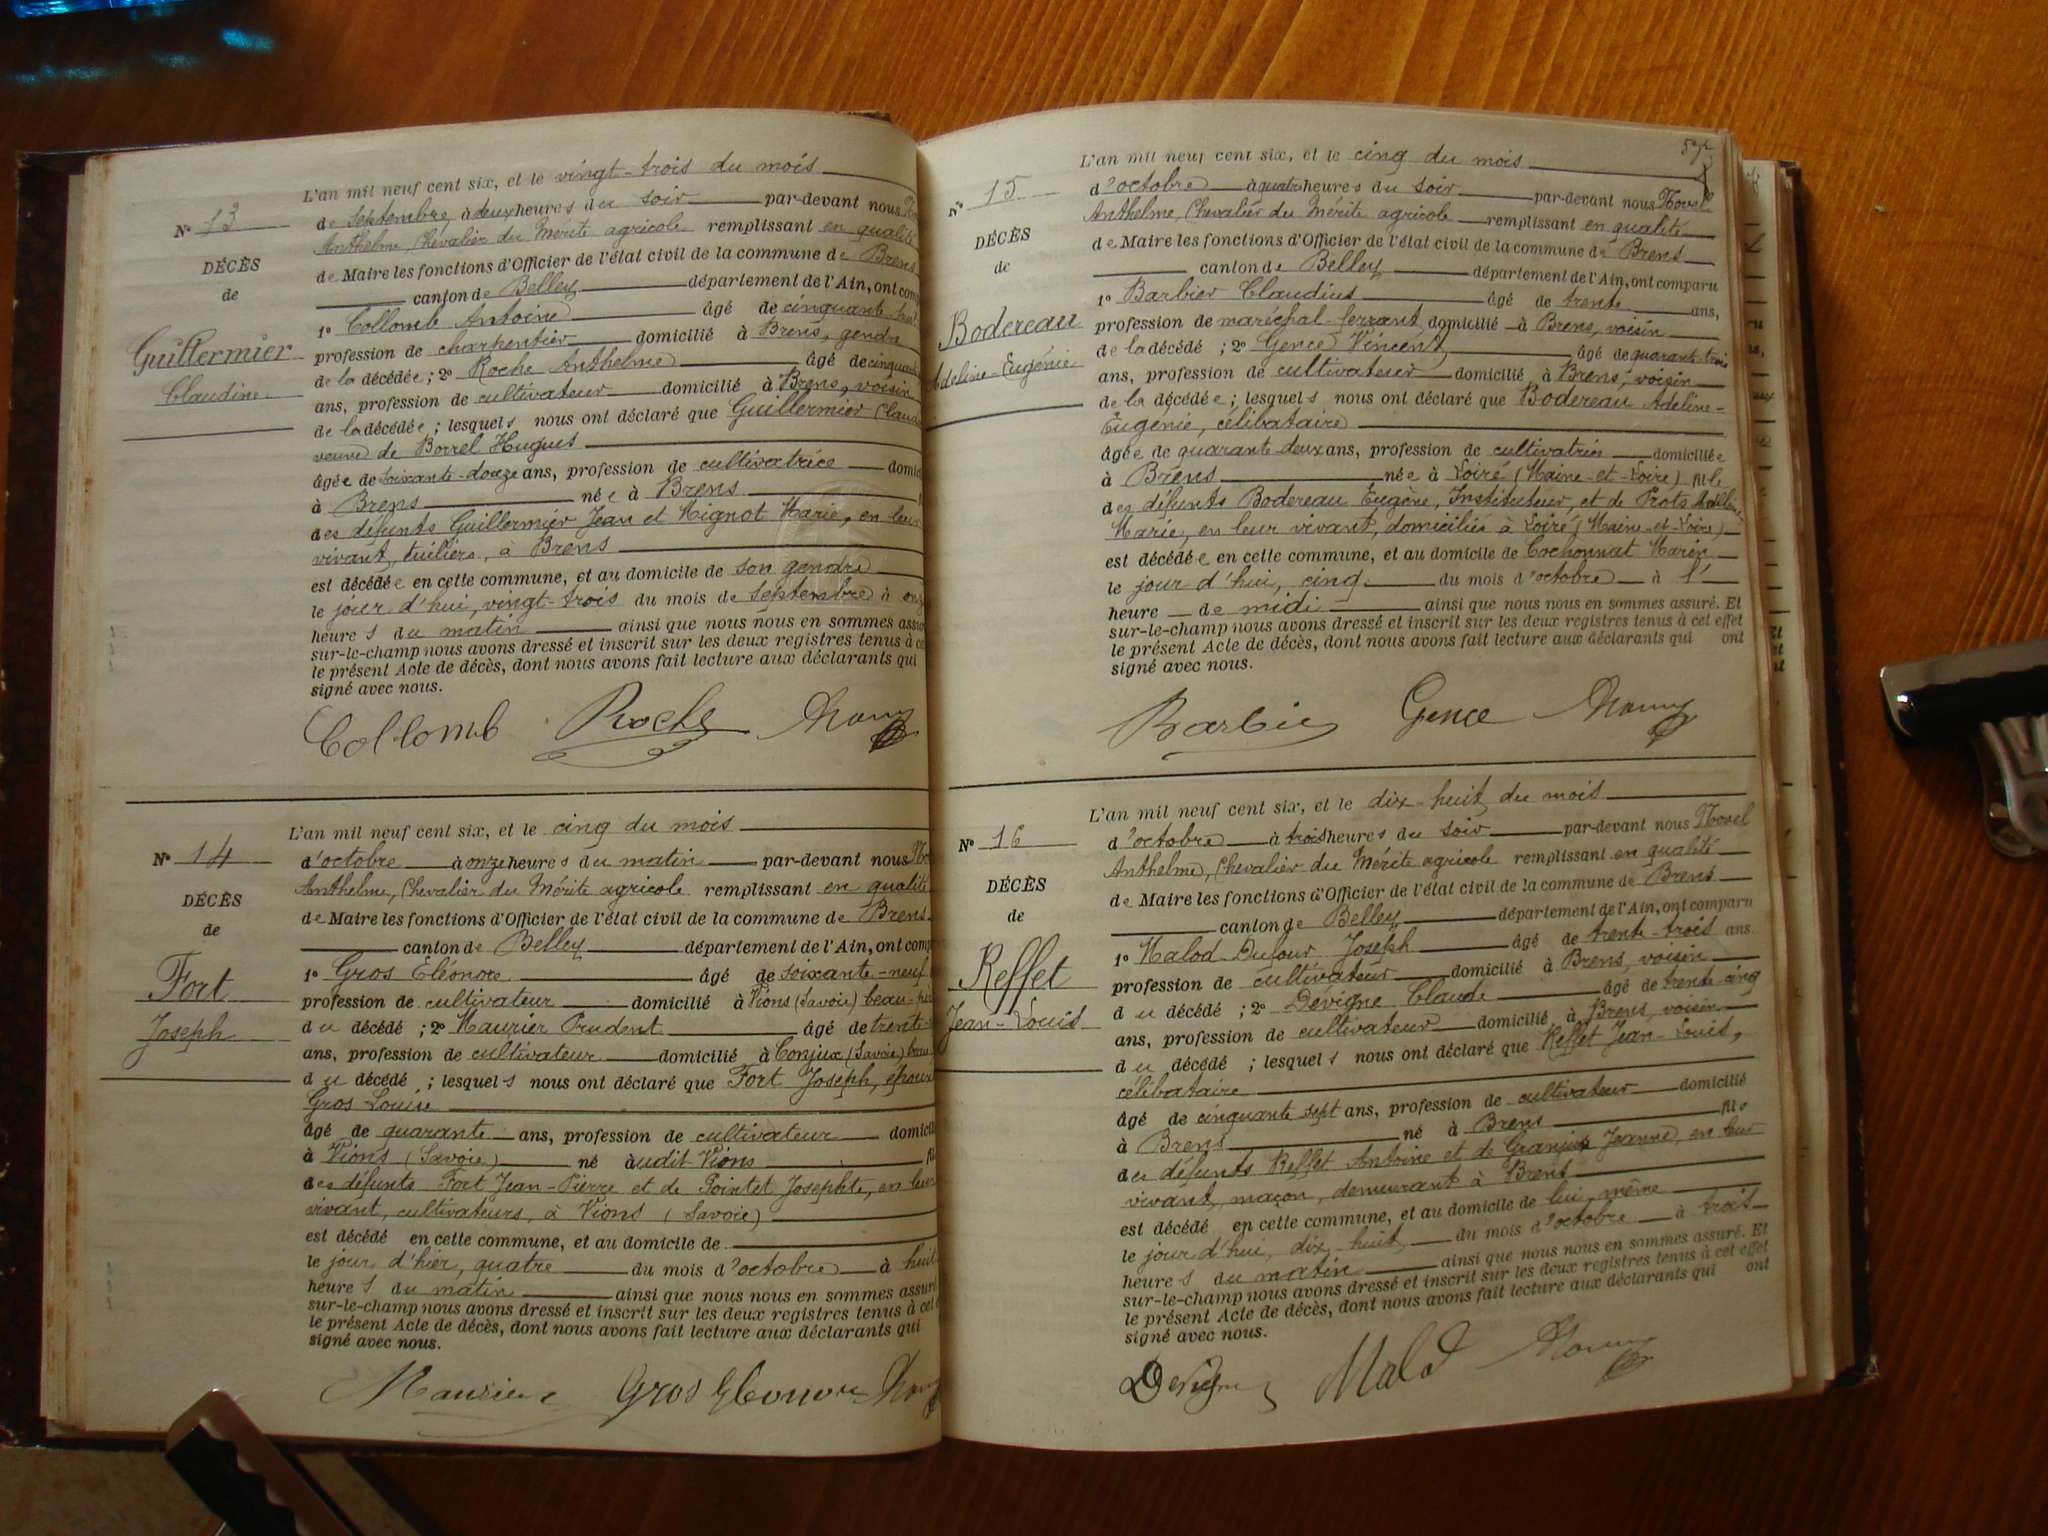 N° 13
DÉCÈS
de
Guillermier
Claudine
L'an mil neuf cent six, et le vingt-trois du mois
de Septembre à deux heures du soir par-devant nous
Anthelme, Chevalier du Mérite agricole remplissant en qualité
de Maire les fonctions d'Officier de l'état civil de la commune de Brens
canton de Belley département de l'Ain, ont comp
1° Collomb Antoine âgé de cinquante-huit
profession de charpentier domicilié à Brens, gendre
de la décédée ; 2° Roche Anthelme âgé de cinquante
ans, profession de cultivateur domicilié à Brens, voisin
de la décédée ; lesquels nous ont déclaré que Guillermier Claud
veuve de Borrel Hugues
âgée de soixante-douze ans, profession de cultivatrice domici
à Brens née à Brens
des défunts Guillermier Jean et Mignot Marie, en leur
vivant, tuiliers, à Brens
est décédée en cette commune, et au domicile de son gendre
le jour d'hui, vingt-trois du mois de Septembre à onz
heures du matin ainsi que nous nous en sommes assur
sur-le-champ nous avons dressé et inscrit sur les deux registres tenus à ce
le présent Acte de décès, dont nous avons fait lecture aux déclarants qui
signé avec nous.
Collomb Roche
N° 14
DÉCÈS
de
Fort
Joseph
L'an mil neuf cent six, et le cinq du mois
d'octobre à onze heures du matin par-devant nous No
Anthelme, Chevalier du Mérite agricole remplissant en qualité
de Maire les fonctions d'Officier de l'état civil de la commune de Brens
canton de Belley département de l'Ain, ont comp
1° Gros Eléonore âgé de soixante-neuf
profession de cultivateur domicilié à Vions (Savoie) beau-pèr
du décédé ; 2° Maurier Prudent âgé de trente
ans, profession de cultivateur domicilié à Conjux (Savoie) beau
du décédé ; lesquels nous ont déclaré que Fort Joseph, époux
Gros Louise
âgé de quarante ans, profession de cultivateur domicili
à Vions (Savoie) né à udit Vions fil
des défunts Fort Jean-Pierre et de Pointet Josephte, en leur
vivant, cultivateurs, à Vions (Savoie)
est décédé en cette commune, et au domicile de
le jour d'hier, quatre du mois d'octobre à huit
heures du matin ainsi que nous nous en sommes assuré
sur-le-champ nous avons dressé et inscrit sur les deux registres tenus à cet
le présent Acte de décès, dont nous avons fait lecture aux déclarants qui
signé avec nous.
Maurier Gros Eléonore
N° 15
DÉCÈS
de
Bodereau
Adeline-Eugénie
L'an mil neuf cent six, et le cinq du mois
d'octobre à quatre heures du soir par-devant nous Novel
Anthelme, Chevalier du Mérite agricole remplissant en qualité
de Maire les fonctions d'Officier de l'état civil de la commune de Brens
canton de Belley département de l'Ain, ont comparu
1° Barbier Claudius âgé de trente ans,
profession de maréchal-ferrant domicilié à Brens, voisin
de la décédé ; 2° Gence Vincent âgé de quarante-trois
ans, profession de cultivateur domicilié à Brens, voisin
de la décédée ; lesquels nous ont déclaré que Bodereau Adeline-
Eugénie, célibataire
âgée de quarante deux ans, profession de cultivatrice domiciliée
à Brens née à Loiré (Maine-et-Loire) fille
des défunts Bodereau Eugène, Instituteur, et de Prots Adeline
Marie, en leur vivant, domiciliés à Loiré (Maine-et-Loire)
est décédée en cette commune, et au domicile de Cochonnat Marin
le jour d'hui, cinq du mois d'octobre à l'
heure de midi ainsi que nous nous en sommes assuré. Et
sur-le-champ nous avons dressé et inscrit sur les deux registres tenus à cet effet
le présent Acte de décès, dont nous avons fait lecture aux déclarants qui ont
signé avec nous.
Barbier Gence
N° 16
DÉCÈS
de
Reffet
Jean-Louis
L'an mil neuf cent six, et le dix-huit du mois
d'octobre à trois heures du soir par-devant nous Novel
Anthelme, Chevalier du Mérite agricole remplissant en qualité
de Maire les fonctions d'Officier de l'état civil de la commune de Brens
canton de Belley département de l'Ain, ont comparu
1° Malod-Dufour Joseph âgé de trente-trois ans
profession de cultivateur domicilié à Brens, voisin
du décédé ; 2° Devigne Claude âgé de trente-cinq
ans, profession de cultivateur domicilié à Brens, voisin
du décédé ; lesquels nous ont déclaré que Reffet Jean-Louis,
célibataire
âgé de cinquante sept ans, profession de cultivateur domicilié
à Brens né à Brens fils
des défunts Reffet Antoine et de Jeanne, en leur
vivant, maçon, demeurant à Brens
est décédé en cette commune, et au domicile de lui-même
le jour d'hui, dix-huit du mois d'octobre à trois
heures du matin ainsi que nous nous en sommes assuré. Et
sur-le-champ nous avons dressé et inscrit sur les deux registres tenus à cet effet
le présent Acte de décès, dont nous avons fait lecture aux déclarants qui ont
signé avec nous.
Devigne Malod